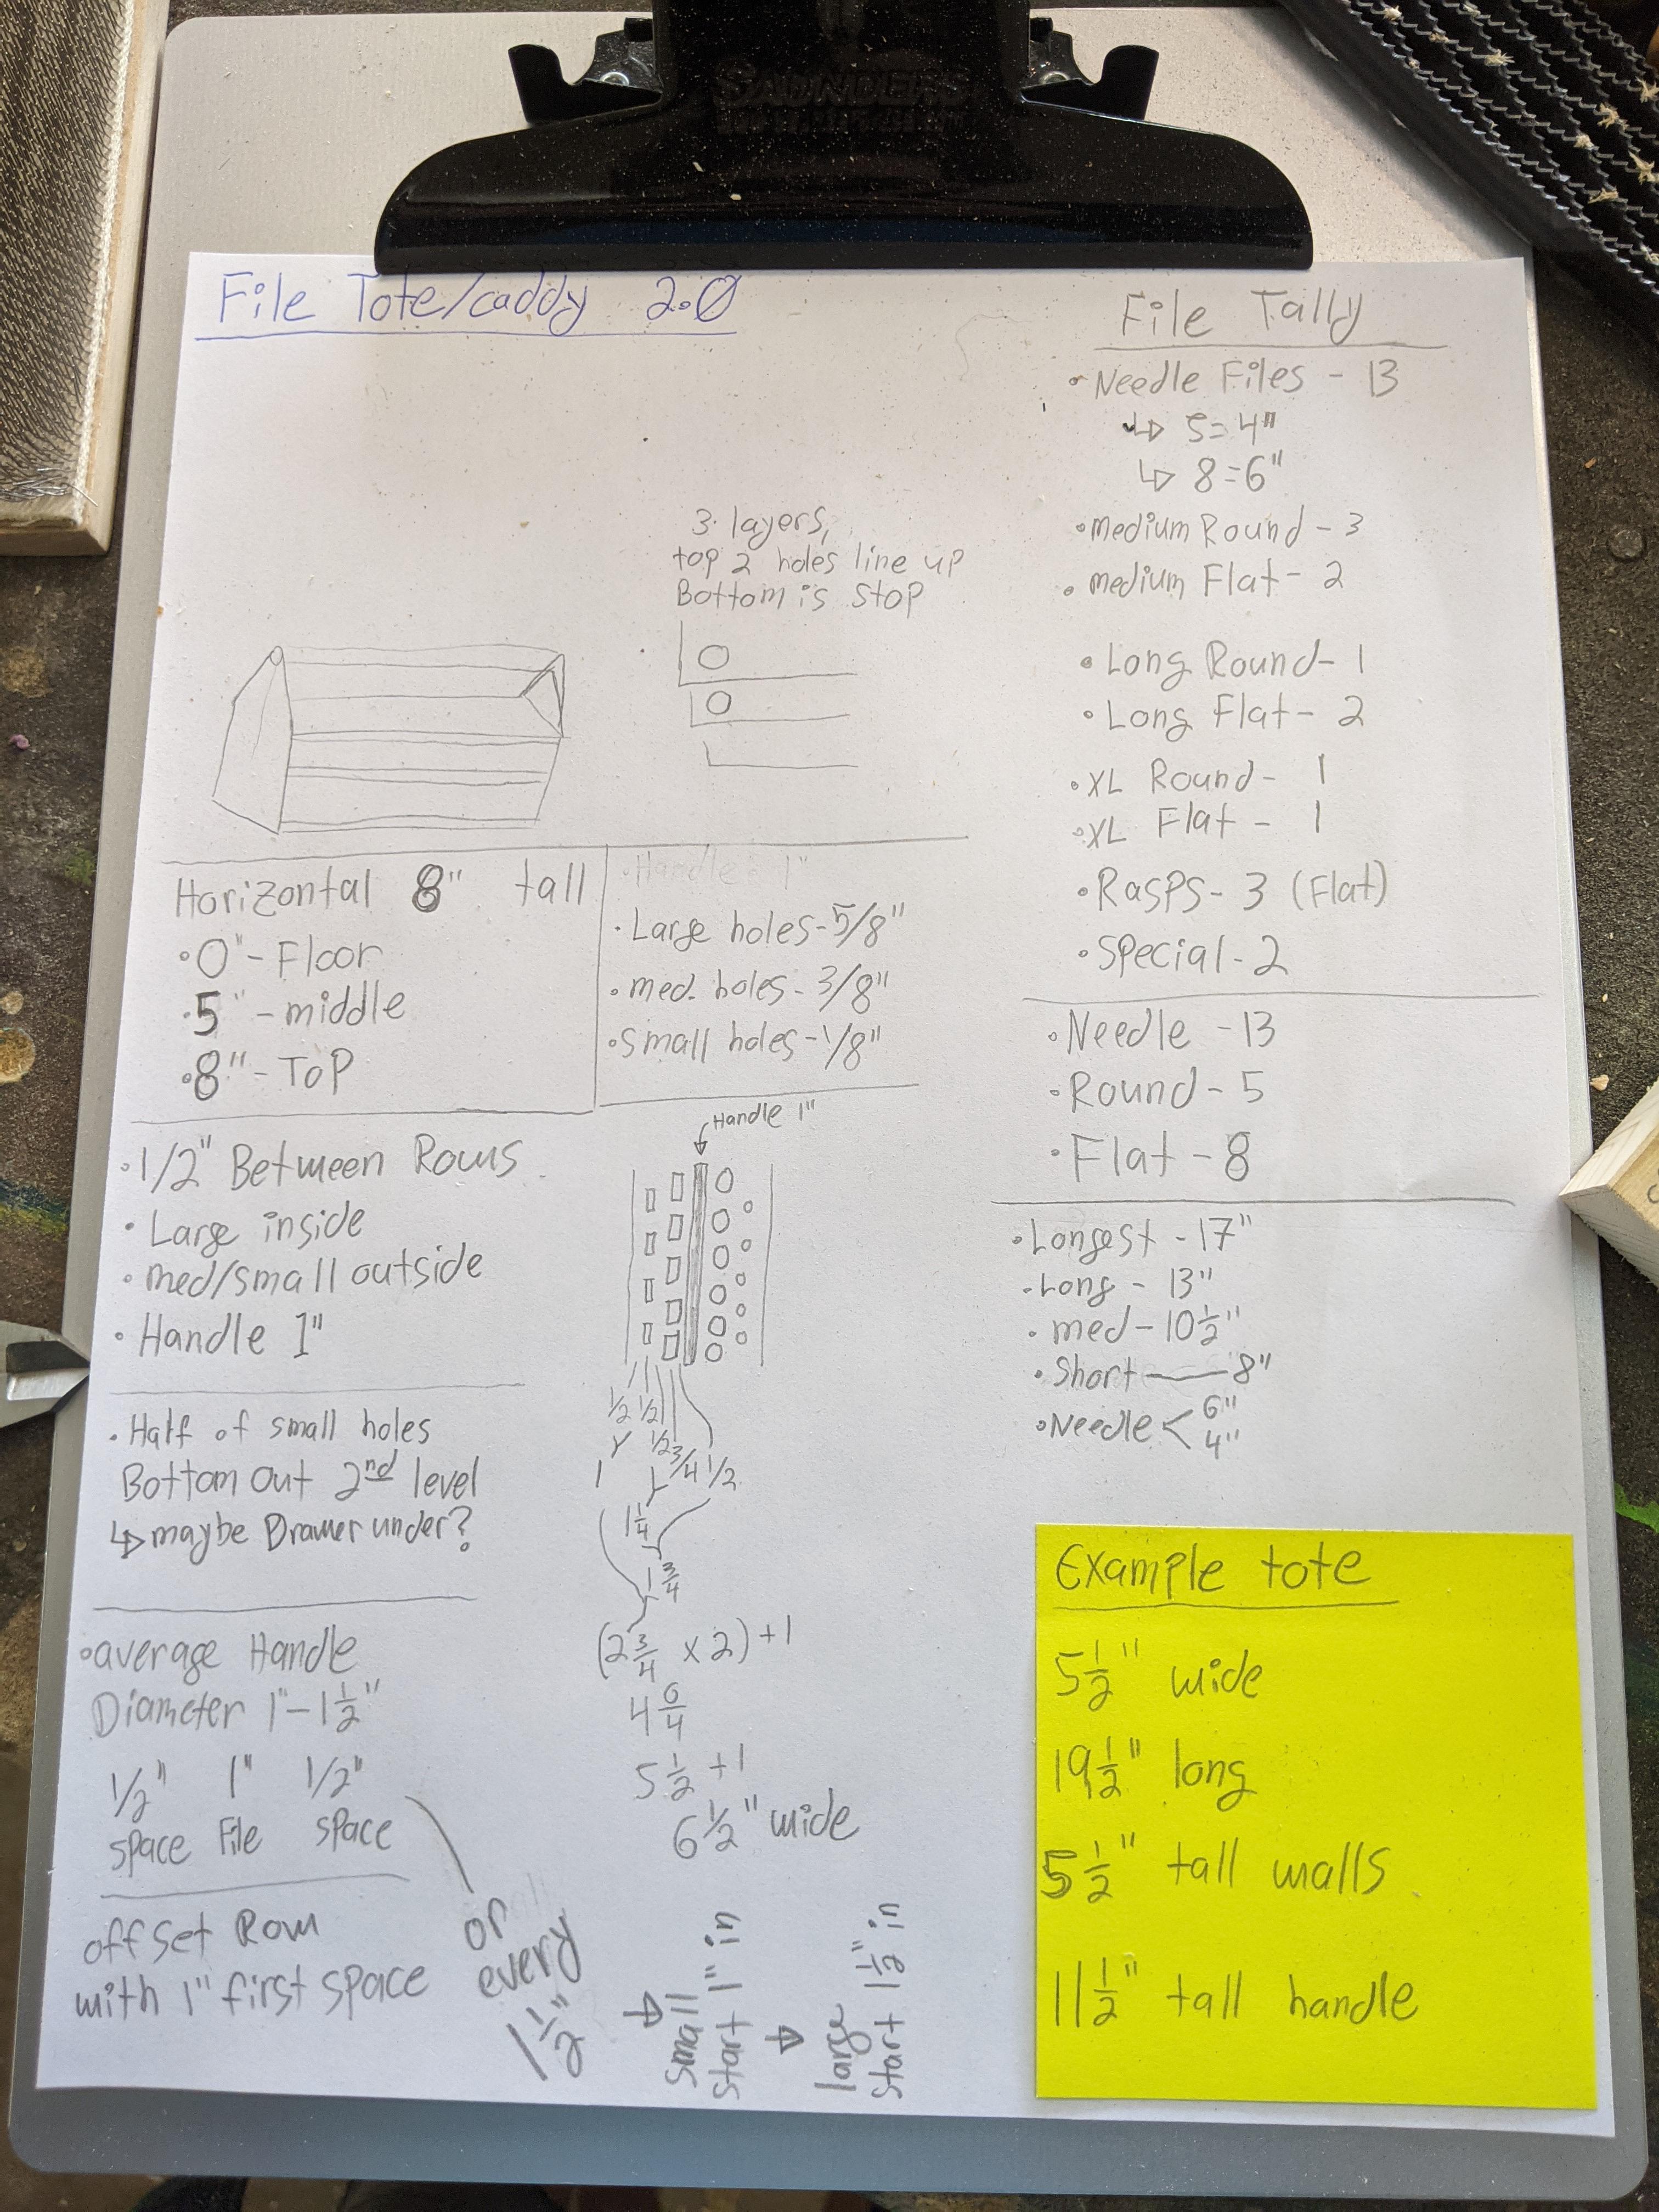 SAUNDERS
File Tote/caddy 2.0
3 layers,
top 2 holes line up
Bottom is stop
Horizontal 8" tall
•0"-Floor
•5"-middle
•8"-Top
•Handle - 1"
•Large holes-5/8"
•med. holes-3/8"
•small holes-1/8"
•1/2" Between Rows
•Large inside
•med/small outside
•Handle 1"
Handle 1"
•Half of small holes
Bottom out 2nd level
↳maybe Drawer under?
1/2 1/2
1/2 3/4 1/2
1
1 1/4
1 3/4
(2 3/4 x 2) +1
4 6/4
5 1/2 +1
6 1/2" wide
•average Handle
Diameter 1"-1 1/2"
1/2" 1" 1/2"
space File space
or
every
1 1/2"
offset Row
with 1" first space
small
start 1" in
large
start 1 1/2" in
File Tally
•Needle Files - 13
↳ 5=4"
↳ 8=6"
•medium Round - 3
•medium Flat - 2
•Long Round- 1
•Long Flat- 2
•XL Round- 1
•XL Flat- 1
•Rasps- 3 (Flat)
•Special-2
•Needle -13
•Round-5
•Flat-8
•Longest -17"
•Long - 13"
•med-10 1/2"
•Short—8"
•Needle< 6"
4"
Example tote
5 1/2" wide
19 1/2" long
5 1/2" tall walls
11 1/2" tall handle